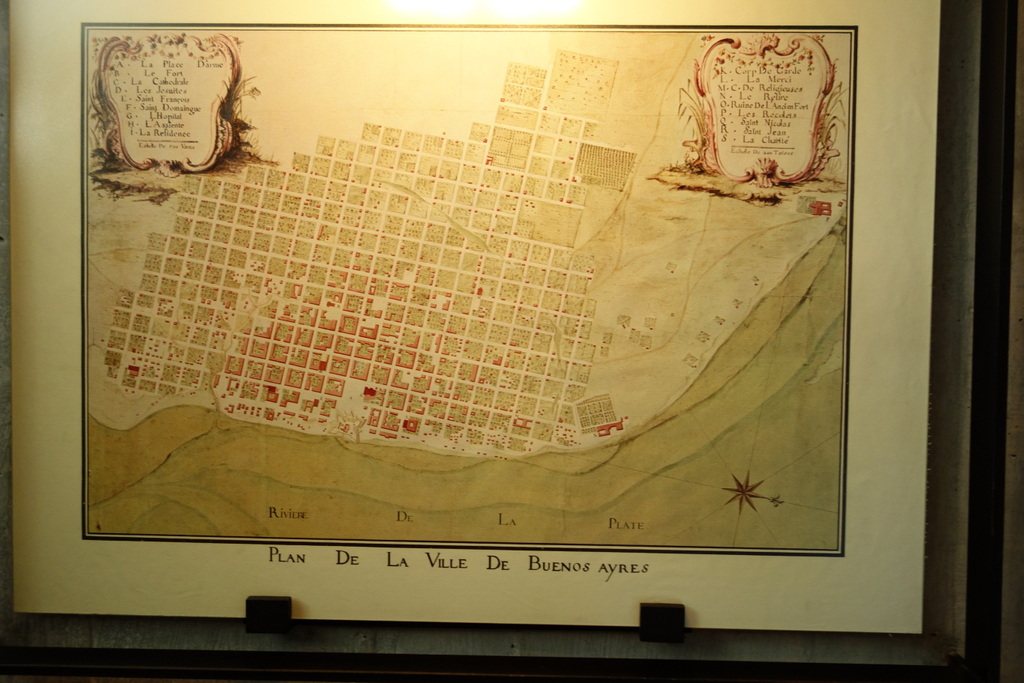 A · La Place Darme
B · Le Fort
C · La Cathedrale
D · Les Jesuites
E · Saint François
F · Saint Domaingue
G · L'Hopital
H · L'Axiente
I · La Residence
K · Corp De Garde
L · La Merci
M · C · De Religieuses
N · Le Retire
O · Ruine De L'Ancien Fort
P · Les Recolets
Q · Saint Nicolas
R · Saint Jean
S · La Charité
Riviere De La Plate
Plan De La Ville De Buenos ayres